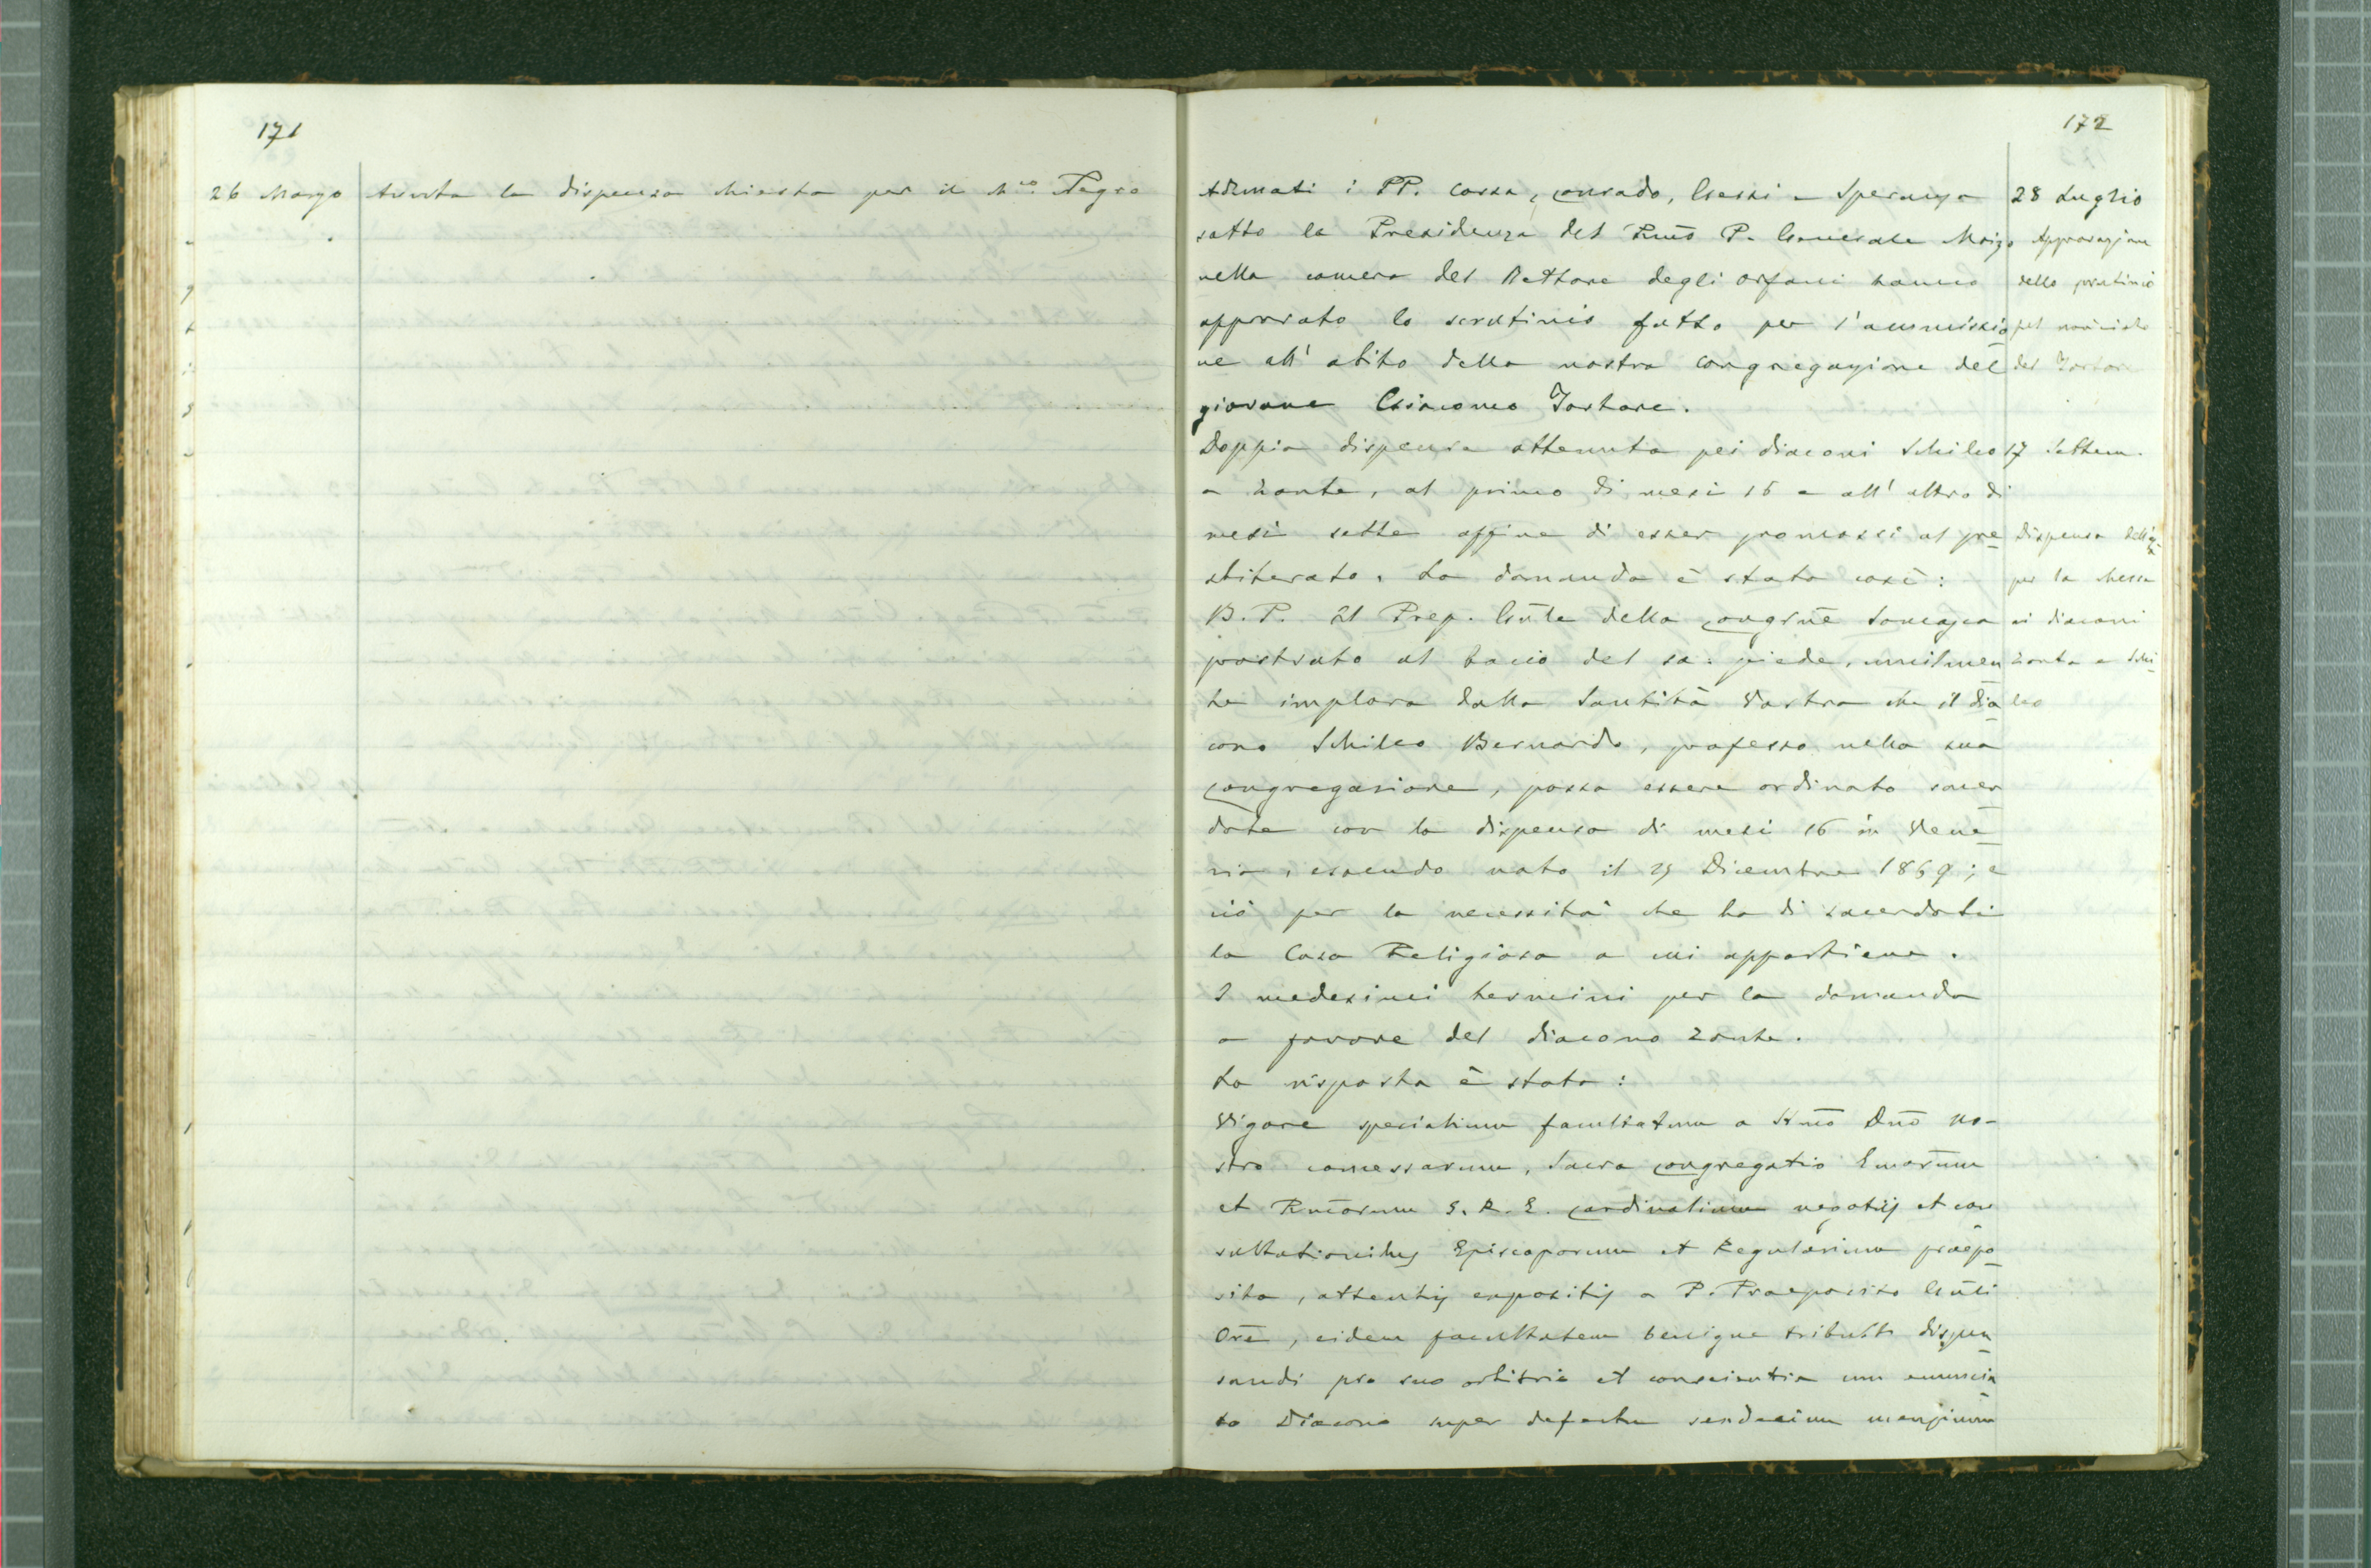 171
26 Marzo
Avuta la dispensa chiesta per il Ch.co Negro
172
Adunati i PP. Cossa, Conrado, Gessi e Speranza
sotto la Presidenza del Rmo P. Generale Moizo
nella camera del Rettore degli Orfani hanno
approvato lo scrutinio fatto per l'ammissio
ne all'abito della nostra Congregazione del
giovane Giacomo Tortore.
28 Luglio
Approvazione
dello scrutinio
pel
del
Doppia dispensa ottenuta pei diaconi Schileo
e Zonta, al primo di mesi 16 e all'altro di
mesi sette affine di esser promossi al pre
sbiterato. La domanda è stata così:
B. P. Il Prep. Gnle della Congrne Somasca
prostrato al bacio del sa. piede, umilmen
te implora dalla Santità Vostra che il dia
cono Schileo Bernardo, professo nella sua
Congregazione, possa essere ordinato sacer
dote con la dispensa di mesi 16 in Vene
zia, essendo nato il 29 Dicembre 1869; e
ciò per la necessità che ha di sacerdoti
la Casa Religiosa a cui appartiene.
I medesimi termini per la domanda
a favore del diacono Zonta.
La risposta è stata:
17 Settem.
Dispensa dell'
per la Messa
ai diaconi
Zonta e Schi
leo
Vigore specialium facultatum a SSmo Dno No-
stro concessarum, Sacra Congregatio Emorum
et Rmorum S. R. E. Cardinalium negotiis et con
sultationibus Episcoporum et Regularium praepo
sita, attentis expositis a P. Praeposito Gnli
Ore, eidem facultatem benigne tribuit dispen
sandi pro suo arbitrio et conscientia cum enuncia
to Diacono super defectu sexdecim mensium